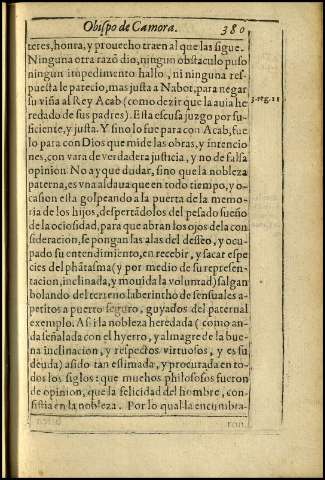 Obispo de Camora. 380
teres, honra, y prouecho traen al que las sigue.
Ninguna otra razõ dio, ningun obstaculo puso
ningun impedimento hallo, ni ninguna res-
puesta le parecio, mas justa a Nabot, para negar
su viña al Rey Acab (como dezir que la auia he
3. reg. 21
redado de sus padres). Esta escusa juzgo por su-
ficiente, y justa. Y sino lo fue para con Acab, fue
lo para con Dios que mide las obras, y intencio
nes, con vara de verdadera justicia, y no de falsa
opinion. No ay que dudar, sino que la nobleza
paterna, es vna aldaua que en todo tiempo, y o-
casion esta golpeando a la puerta de la memo-
ria de los hijos, despertãdolos del pesado sueño
de la ociosidad, para que abran los ojos de la con
sideracion, se pongan las alas del desseo, y ocu-
pado su entendimiento, en recebir, y sacar espe
cies del phãtasma (y por medio de su represen-
tacion, inclinada, y mouida la voluntad) salgan
bolando del terreno laberintho de sensuales a-
petitos a puerto seguro, guyados del paternal
exemplo. Assi la nobleza heredada (como an-
da señalada con el hyerro, y almagre de la bue-
na inclinacion, y respectos virtuosos, y es su
deuda) a sido tan estimada, y procurada en to-
dos los siglos: que muchos philosofos fueron
de opinion, que la felicidad del hombre, con-
sistia en la nobleza. Por lo qual la encumbra-
ron